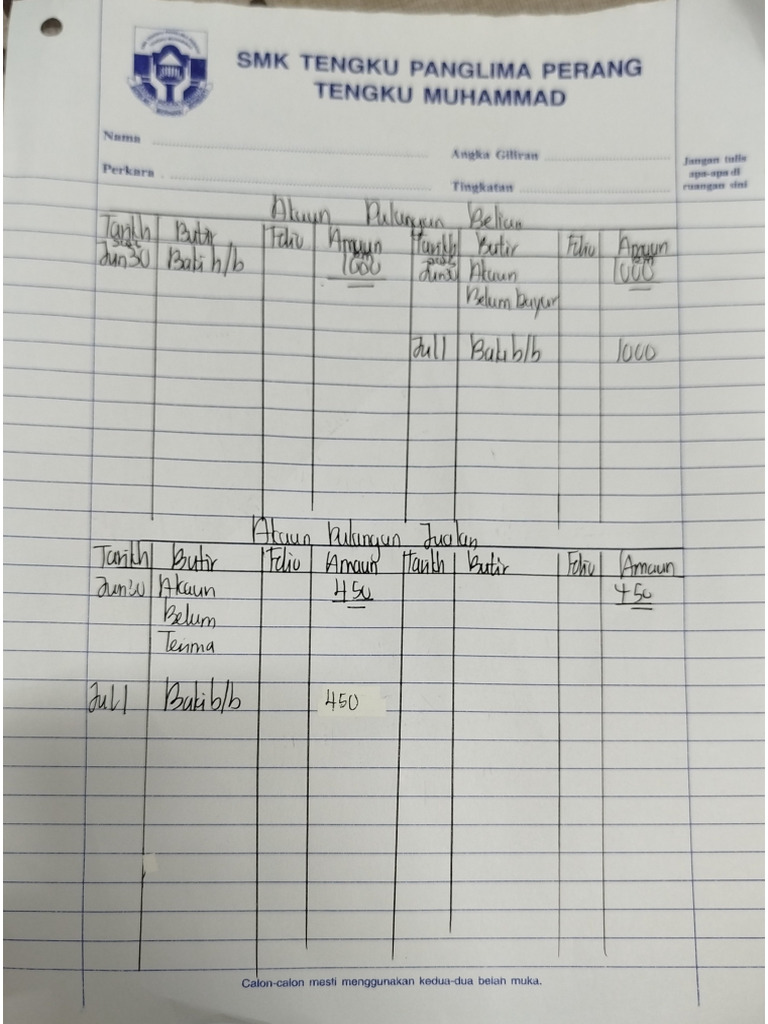 SMK TENGKU PANGLIMA PERANG
TENGKU MUHAMMAD
Nama
Angka Giliran
Jangan tulis
apa-apa di
ruangan sini
Perkara
Tingkatan
Akaun Pulangan Belian
Tarikh Butir Folio Amaun Tarikh Butir Folio Amaun
2025 RM 2025 RM
Jun 30 Baki h/b 1000 Jun 30 Akaun 1000
Belum bayar
Jul 1 Baki b/b 1000
Akaun Pulangan Jualan
Tarikh Butir Folio Amaun Tarikh Butir Folio Amaun
Jun 30 Akaun 450 450
Belum
Terima
Jul 1 Baki b/b 450
Calon-calon mesti menggunakan kedua-dua belah muka.